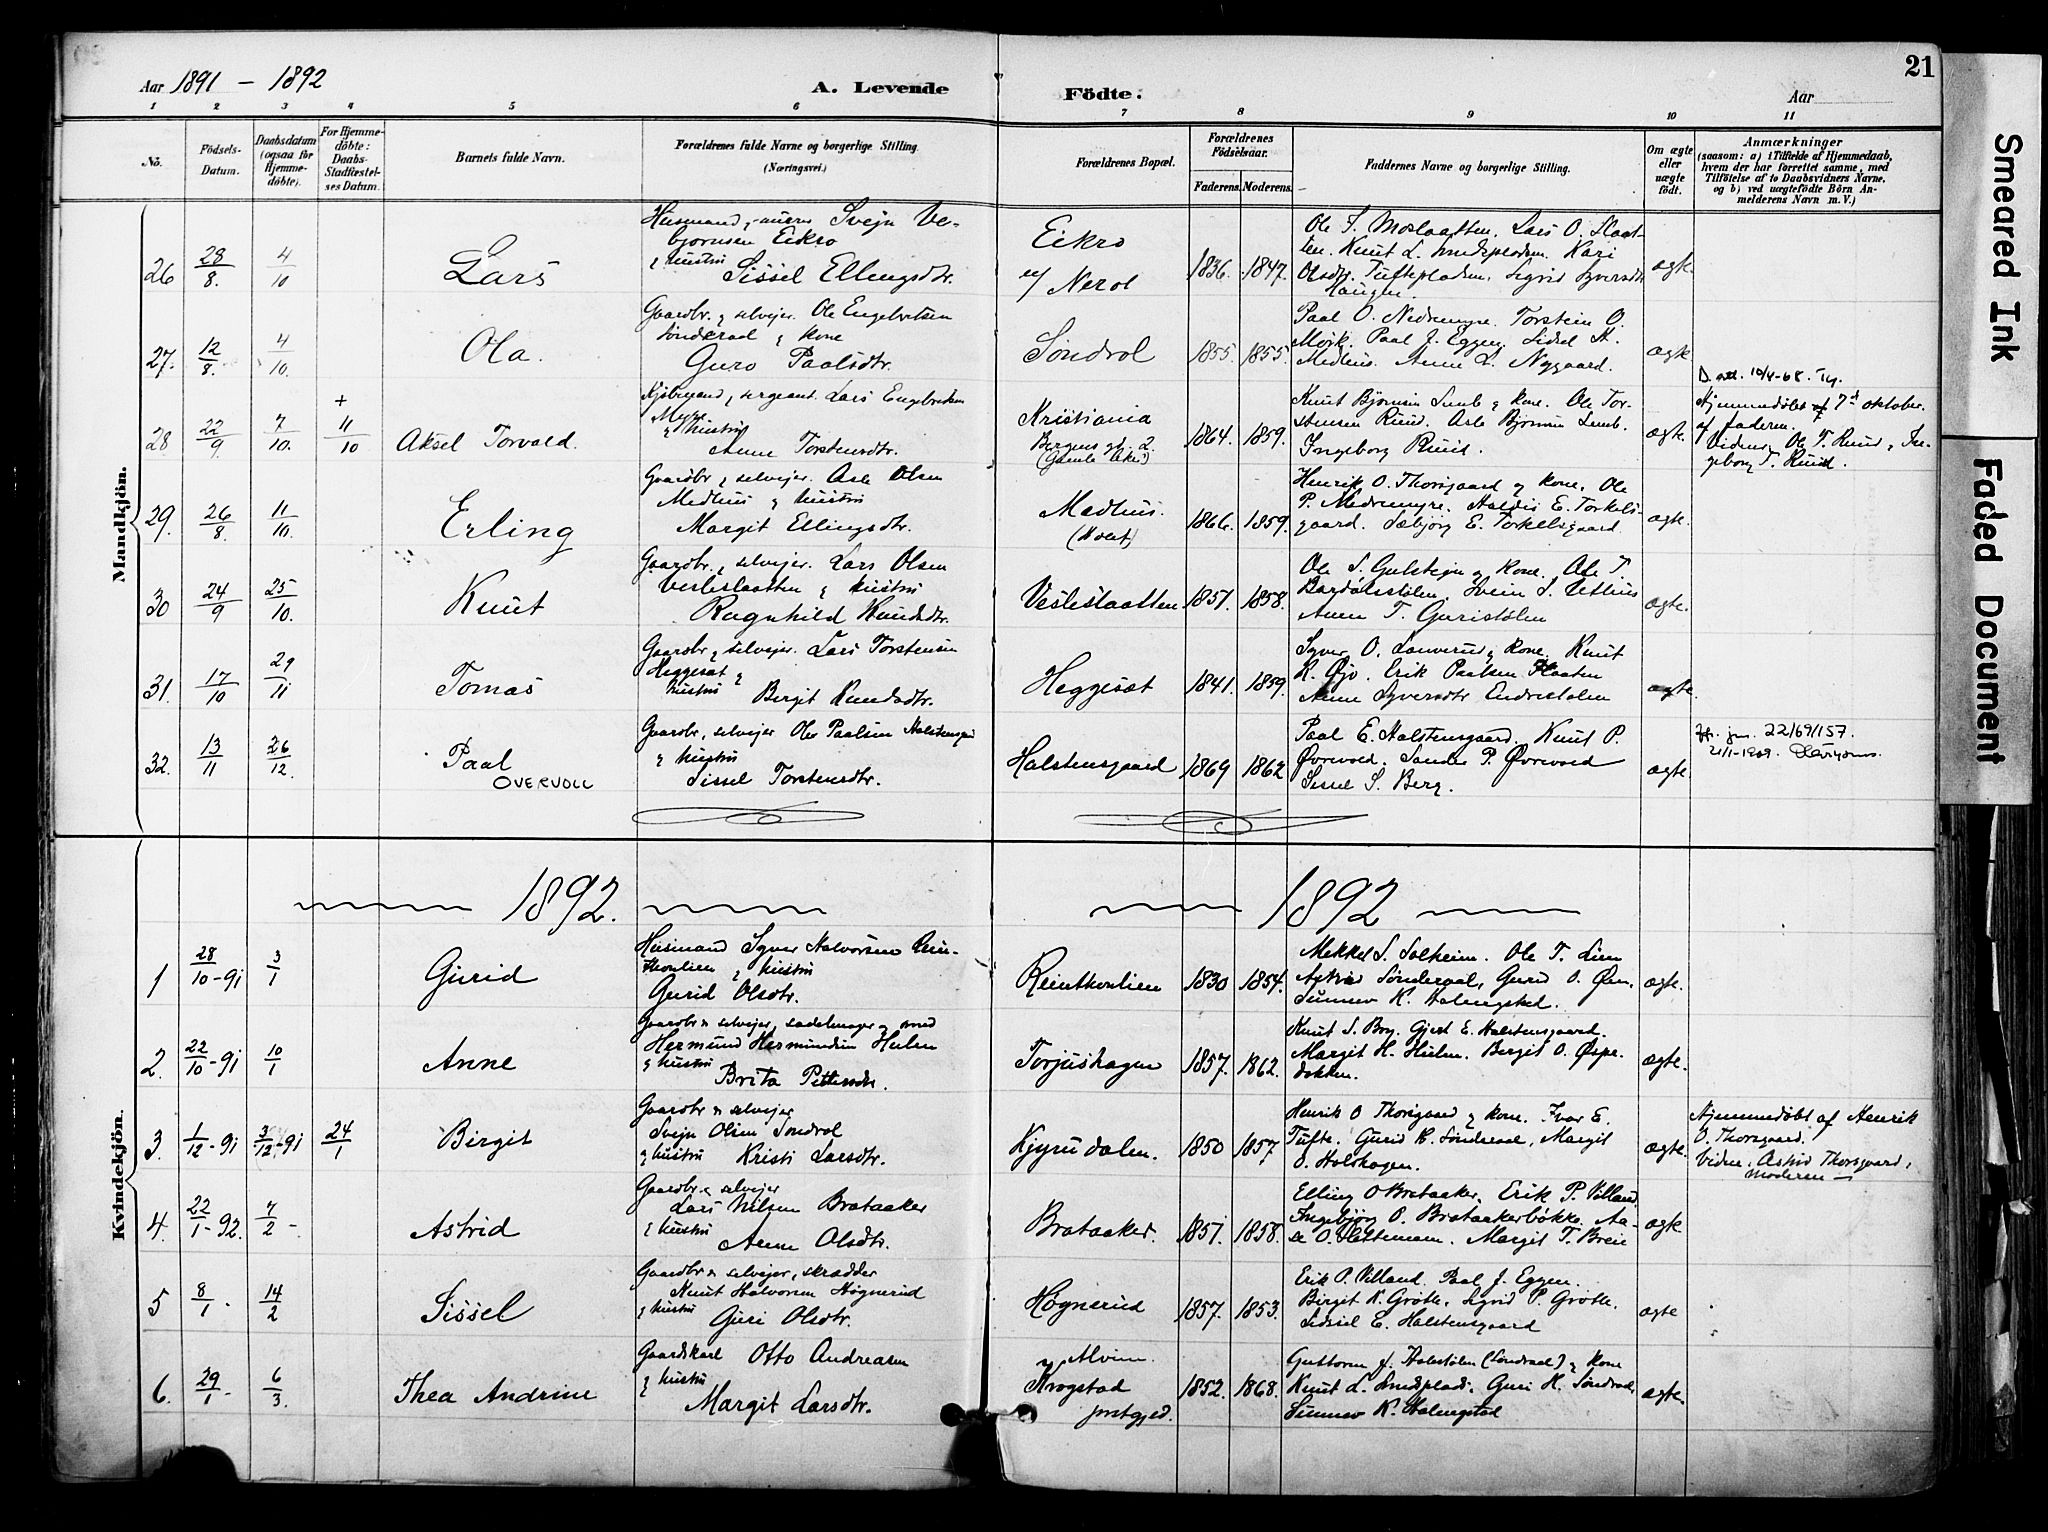 21
Aar 1891 – 1892
A. Levende Födte.
Aar
1 2 3 4 5 6 7 8 9 10 11
No.
Födsels-
Datum.
Daabsdatum
(ogsaa for
Hjemme-
döbte).
For Hjemme-
döbte:
Daabs-
Stadfæstel-
ses Datum.
Barnets fulde Navn.
Forældrenes fulde Navne og borgerlige Stilling.
(Næringsvei.)
Forældrenes Bopæl.
Forældrenes
Födselsaar.
Faderens. Moderens.
Faddernes Navne og borgerlige Stilling.
Om ægte
eller
uægte
födt.
Anmærkninger
(saasom: a) i Tilfælde af Hjemmedaab,
hvem der har forrettet samme, med
Tilföielse af to Daabsvidners Navne,
og b) ved uægtefödte Börn An-
melderens Navn m. V.)
Mandkjön.
26 28/8. 4/10 Lars
Husmand, murer Svejn Ve-
bjørnsen Eikro
& hustru
Sissel Ellingsdtr.
Eikro
u/ Nerol
1836. 1847.
Ole S. Moslaatten. Lars O. Slaat-
ten. Knut L. Kari
Olsdtr. Tuftepladsen. Sigrid Syversdtr
Haugen.
ægte.
27. 12/8. 4/10. Ola.
Gaardbr. & selvejer. Ole Engebretsen
Sønderaal & kone
Guro Paalsdtr.
Søndrol
1855. 1855.
Paal O. Nedremyre. Torstein O.
Mørk. Paal J. Eggen. Sidsel
Medhus. Anne L. Nygaard.
ægte
D. 10/4-68.
28 22/9 7/10. + 11/10 Aksel Torvald.
Kjøbmand, sergeant. Lars Engebretsen
Myre
& hustru
Anne Torstensdtr.
Kristiania
Bergens gd. 2.
(Gamle Aker)
1864. 1859.
Knut Bjørnsen Lunb & kone. Ole Tor-
stensen Ruud. Asle Bjørnsen
Ingeborg Ruud.
ægte.
Hjemmedøbt 7de oktober.
af faderen.
Vidner Ole T. Ruud, In-
geborg T. Ruud.
29. 26/8. 11/10. Erling
Gaardbr. & selvejer. Asle Olsen
Medhus & hustru
Margit Ellingsdtr.
Medhus.
(Hoet)
1866. 1859.
Henrik O. Thorsgaard & kone. Ole
P. Nedremyre. Haldis E. Torkels-
gaard. Sebjørg E. Torkelsgaard
ægte.
30 24/9 25/10. Knut
Gaardbr. & selvejer. Lars Olsen
Vesleslaatten & hustru
Ragnhild Knudsdtr.
Vesleslaatten
1857. 1858.
Ole S. Gulstejn & kone. Ole T.
Bardølsstølen. Svein S.
Anne T. Guristølen
ægte.
31. 17/10 29/11 Tomas
Gaardbr & selvejer. Lars Torstensen
Heggesæt &
hustru
Birgit Knudsdtr.
Heggesæt
1841. 1859.
Syver O. & kone. Knut
K. Øjo. Erik Paalsen Plaaten
Anne Syversdtr Endrestølen
ægte.
32. 13/11 26/12. Paal
OVERVOLL
Gaardbr, selvejer Ole Paalsen Halstensgaard
& hustru
Sissel Torstensdtr.
Halstensgaard
1869 1862
Paal E. Halstensgaard. Knut P.
Øvrevold. Sander P. Øvrevold
Sissel S. Berg.
ægte.
22/69/157.
21/1-1969.
Kvindekjön.
1892. 1892
1 28/10-91 3/1 Gurid
Husmand Syver Halvorsen
& hustru
Gurid Olsdtr.
1830 1854.
Mekkel S. Solheim. Ole T. Lien
Astrid Sønderaal, Gurid O. Øen.
Sunnev K. Halmgstad.
ægte.
2. 22/10-91 10/1 Anne
Gaardbr & selvejer, sadelmager & smed
Hermund Hermundsen Hulen
& hustru
Brita Pettersdtr.
Torjushagen
1857. 1862.
Knut S. Gjert E. Halstensgaard.
Margit H. Hulen. Birgit O. Øspe-
dokken.
ægte.
3. 1/12-91 3/12-91 24/1 Birgit
Gaardbr & selvejer
Svejn Olsen Søndrol
& hustru Kristi Larsdtr.
Kjyrudalen.
1850 1857
Henrik O Thorsgaard & kone. Ivar E.
Tufte. Gurid K. Sønderaal, Margit
O. Halshagen.
ægte.
Hjemmedøbt af Henrik
O. Thorsgaard.
Vidne. Astrid Thorsgaard,
Moderen —
4. 22/1-92. 7/2 - Astrid
Gaardbr & selvejer
Lars Nilsen Brataaker
& hustru
Anne Olsdtr.
Brataaker.
1857. 1858.
Elling O Brataaker. Erik P. Villand
Ingebjørg O. Brataakerbøkke. Aa-
se O. . Margit T. Breie
ægte
5 8/1. 14/2 Sissel
Gaardbr & selvejer, skrædder
Knut Halvorsen Høgnerud
& hustru
Guri Olsdtr.
Høgnerud
1857. 1853.
Erik P. Villand. Paal J. Eggen.
Birgit K. Grøtte. Sigrid P. Grøtte.
Sidsel E. Halstensgaard
ægte
6. 29/1- 6/3. Thea Andrine
Gaardskarl Otto Andreasen
& hustru
Margit Larsdtr.
Alvim.
Krogstad
prstgjed.
1852. 1868.
Guttorm J. (Søndraal) & kone
Knut L. Guri H. Søndraal,
Sunnev K. Halmgstad
ægte.
Smeared Ink
Faded Document